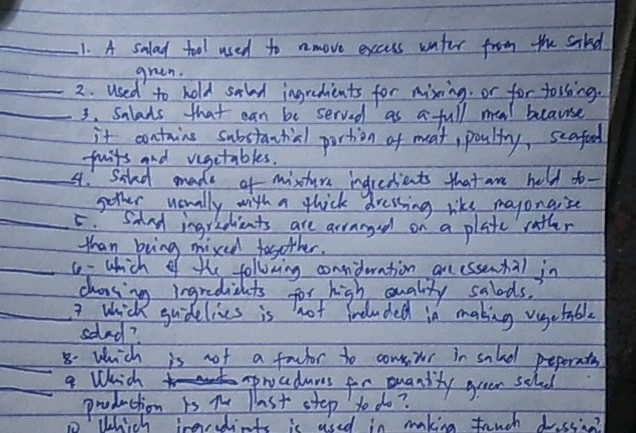 1. A salad tool used to remove excess water from the salad
green.
2. Used to hold salad ingredients for mixing. or for tossing.
3. Salads that can be served as a full meal because
it contains substantial portion of meat, poultry, seafood
fruits and vegetables.
4. Salad made of mixture ingredients that are held to-
gether usually with a thick dressing like mayonaise
5. Salad ingredients are arranged on a plate rather
than being mixed together.
6- Which of the following consideration are essential in
choosing ingredients for high quality salads.
7 Which guidelines is not included in making vegetable
salad?
8- Which is not a factor to consider in salad preparation
9 Which procedures for quantity green salad
production is the last step to do?
10 Which ingredients is used in making french dressing?